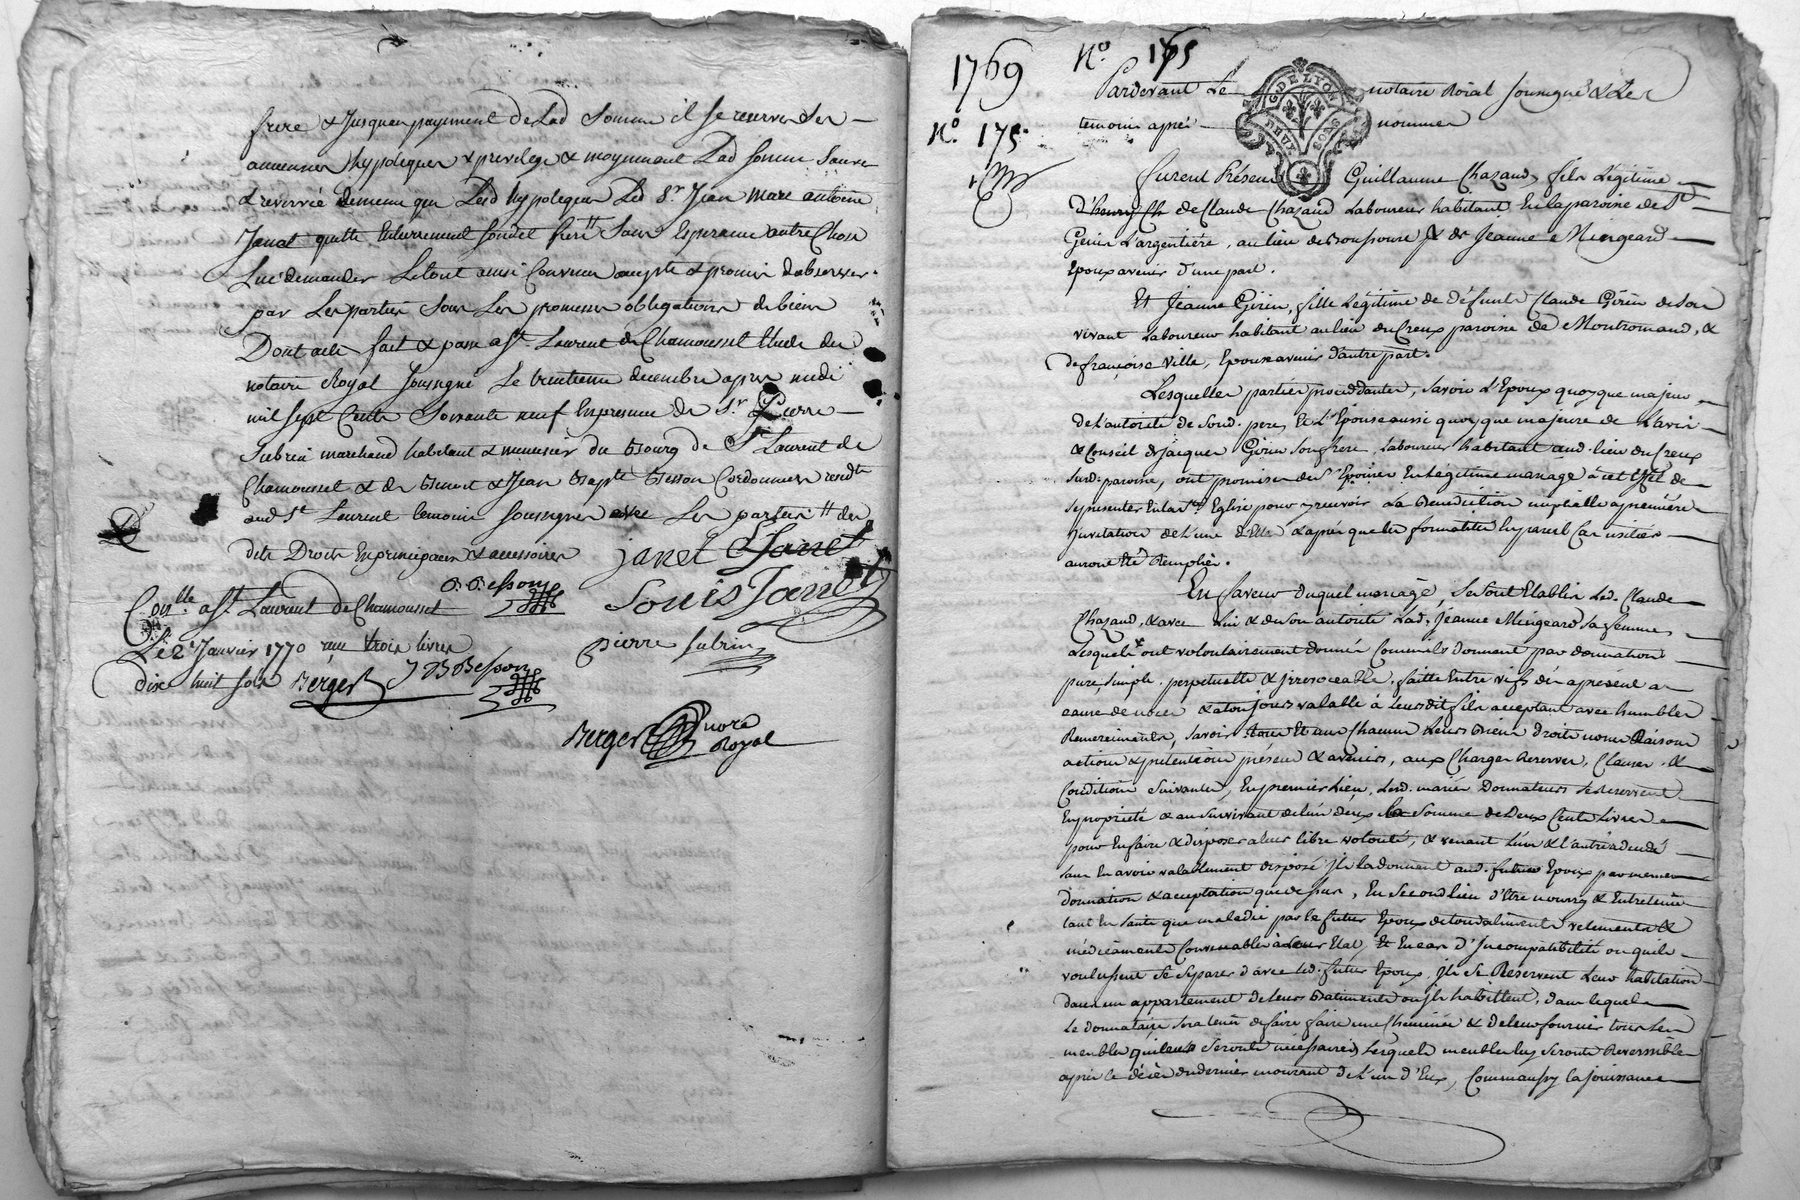 frere & Jusquau payement de Lad Somme il se reserve Ses
hypoteques & privilege & moyennant Lad somme Sauve
& reservé demeure que Lesd hypoteques Led Sr Jean Marc antoine
Janot quitte Entierement Sondit frere Sans Esperance autre Chose
Luy demander Le tout ainsi Convenu accepté & promis dobserver
par Les parties Sous Les promesses obligations de biens
Dont acte fait & passé a St. Laurent de Chamousset Etude du
notaire Royal Soussigné Le trentieme decembre apres midi
mil sept Cents Soixante neuf En presence de Sr. Pierre
Subrin marchand habitant & du Bourg de St Laurent de
Chamousset & de Benoit & Jean Baptte Besson Cordonnier residts
aud St Laurent temoins Soussignes avec Les parties // des
dits Droits En principaux & accessoires janot Janot
B. Besson
Conlle a St. Laurent de Chamousset Louis Janot
Le 2 Janvier 1770 reçu trois livres pierre subrin
dix huit sols Berger J B Besson
Berger nore
Royal
1769 No. 175
No. 175.
Pardevant Le notaire Roial soussigné & Les
temoins après nommés
G. DE LYON
DEUX SOLS
furent Présens Guillaume Chazaud, fils Légitime
d'henry Ch de Claude Chazaud Laboureur habitant En la paroisse de St
Genis L'argentière, au lieu de & de Jeanne Mingeard
Epoux avenir d'une part.
Et Jeanne Girin, fille Légitime de défunt Claude Girin de Son
vivant Laboureur habitant au lieu du Creux paroisse de Montromand, &
de françoise Ville, Epouse avenir d'autre part.
Lesquelles parties procédantes, savoir L'Epoux quoyque majeur
de L'autorité de Sond. pere, Et L'Epouse aussi quoyque majeure de L'avis
& Conseil de Jacques Girin Son frere, Laboureur habitant aud. lieu du Creux
Susd. paroisse, ont promis de S'Epouser En Légitime mariage à cet Effet de
Se presenter En la ste Eglise pour y recevoir La Benediction nuptialle a premiere
Invitation de L'une d'Elles & après que les formalités En pareil Cas usitées
auront Eté Remplies.
En faveur duquel mariage, Se sont Etablis Led. Claude
Chazaud, & avec Lui & de Son autorité Lad. Jeanne Mingeard Sa femme,
Lesquels ont volontairement donné Comme ils donnent par donnation
pure, simple, perpetuelle & irrevocable, faitte Entre vifs dés apresent a
cause de noces & a toujours valable à Leursdit fils acceptant avec humbles
Remerciments, Savoir tous Et uns Chacuns Leurs Biens droits noms Raisons
actions & prétentions présens & avenirs, aux Charges Reserves, Clauses &
Conditions Suivantes, En premier Lieu, Lesd. mariés Donnateurs Se Reservent
En propriété & au Survivant de L'un d'eux la Somme de Deux Cents Livres
pour En faire & disposer a leur libre volonté, & venant L'un & L'autre à decedé
sans En avoir valablement disposé Ils la donnent aud. futur Epoux par meme
donnation & acceptation que dessus, En Second Lieu d'Etre nourry & Entretenus
tant En Santé que maladie par le futur Epoux de tous aliments vetements &
médicaments Convenables à Leur Etat, Et En cas d'Incompatibilité ou qu'ils
voulussent Se Separer d'avec led. futur Epoux, Ils Se Reservent Leur habitation
dans un appartement de Leurs Batiments ou ils habittent, dans lequel
Le donnataire Sera tenu de faire faire une Cheminée & de leur fournir tous Les
meubles qui leur Seront necessaires, Lesquels meubles luy Seront Reversibles
après le décès du dernier mourant de L'un d'Eux, Comme aussy la jouissance